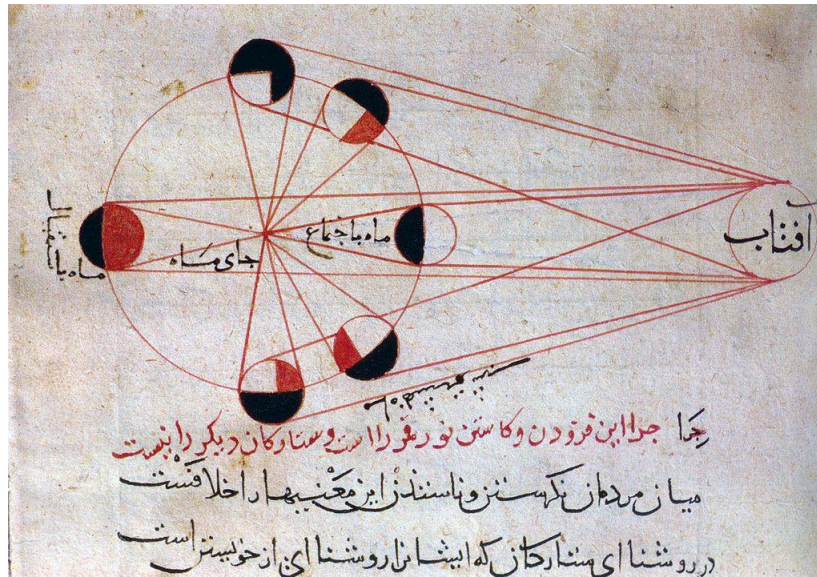 افتاب
ماه باجتماع
جای مَاه
ماه باستقبال
جرَا جرا این فزودن وکاستن نور قمر را است و ستارکان دیکر را نیست
میان مردمان نکرستن این معنیها را خلافست
در روشنا ای ستارکان که ایشانرا روشنا ای از خویشتن است